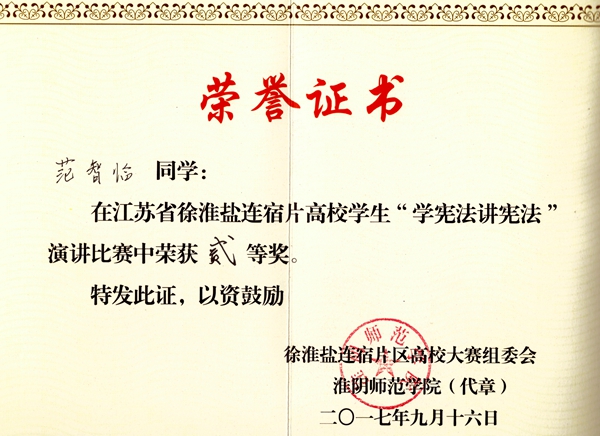 荣誉证书
范智临 同学：
在江苏省徐淮盐连宿片高校学生“学宪法讲宪法”
演讲比赛中荣获 贰 等奖。
特发此证，以资鼓励
徐淮盐连宿片区高校大赛组委会
淮阴师范学院（代章）
二〇一七年九月十六日